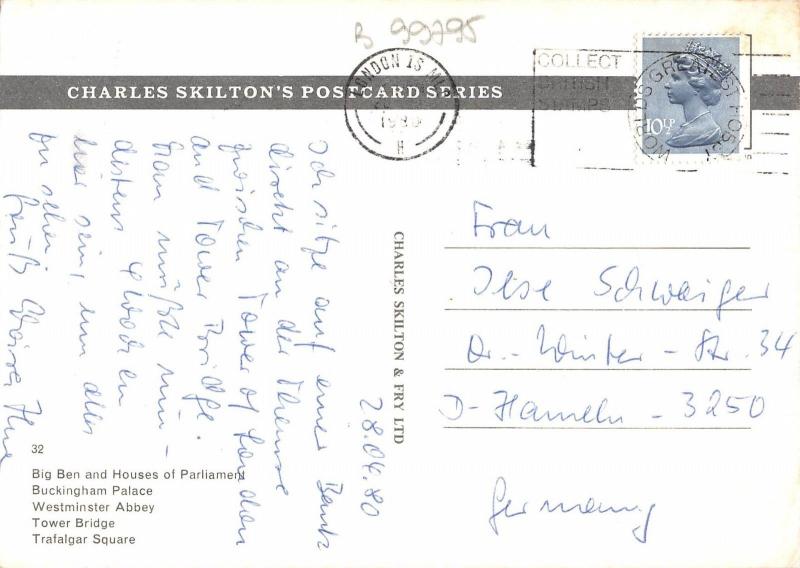 B 99795
COLLECT
BRITISH
STAMPS
WORLD'S GREATEST
10½P
LONDON
1980
H
CHARLES SKILTON'S POSTCARD SERIES
28.04.80
Ich sitze auf einer Bank
direkt an der Themse
zwischen Tower of London
and Tower Bridge.
Man müßte min-
destens 4 Wochen
hier sein, um alles
zu sehen.
Gruß
CHARLES SKILTON & FRY LTD
Frau
Ilse Schwaiger
Dr.-Winter-Str. 34
D-Hameln-3250
Germany
32
Big Ben and Houses of Parliament
Buckingham Palace
Westminster Abbey
Tower Bridge
Trafalgar Square